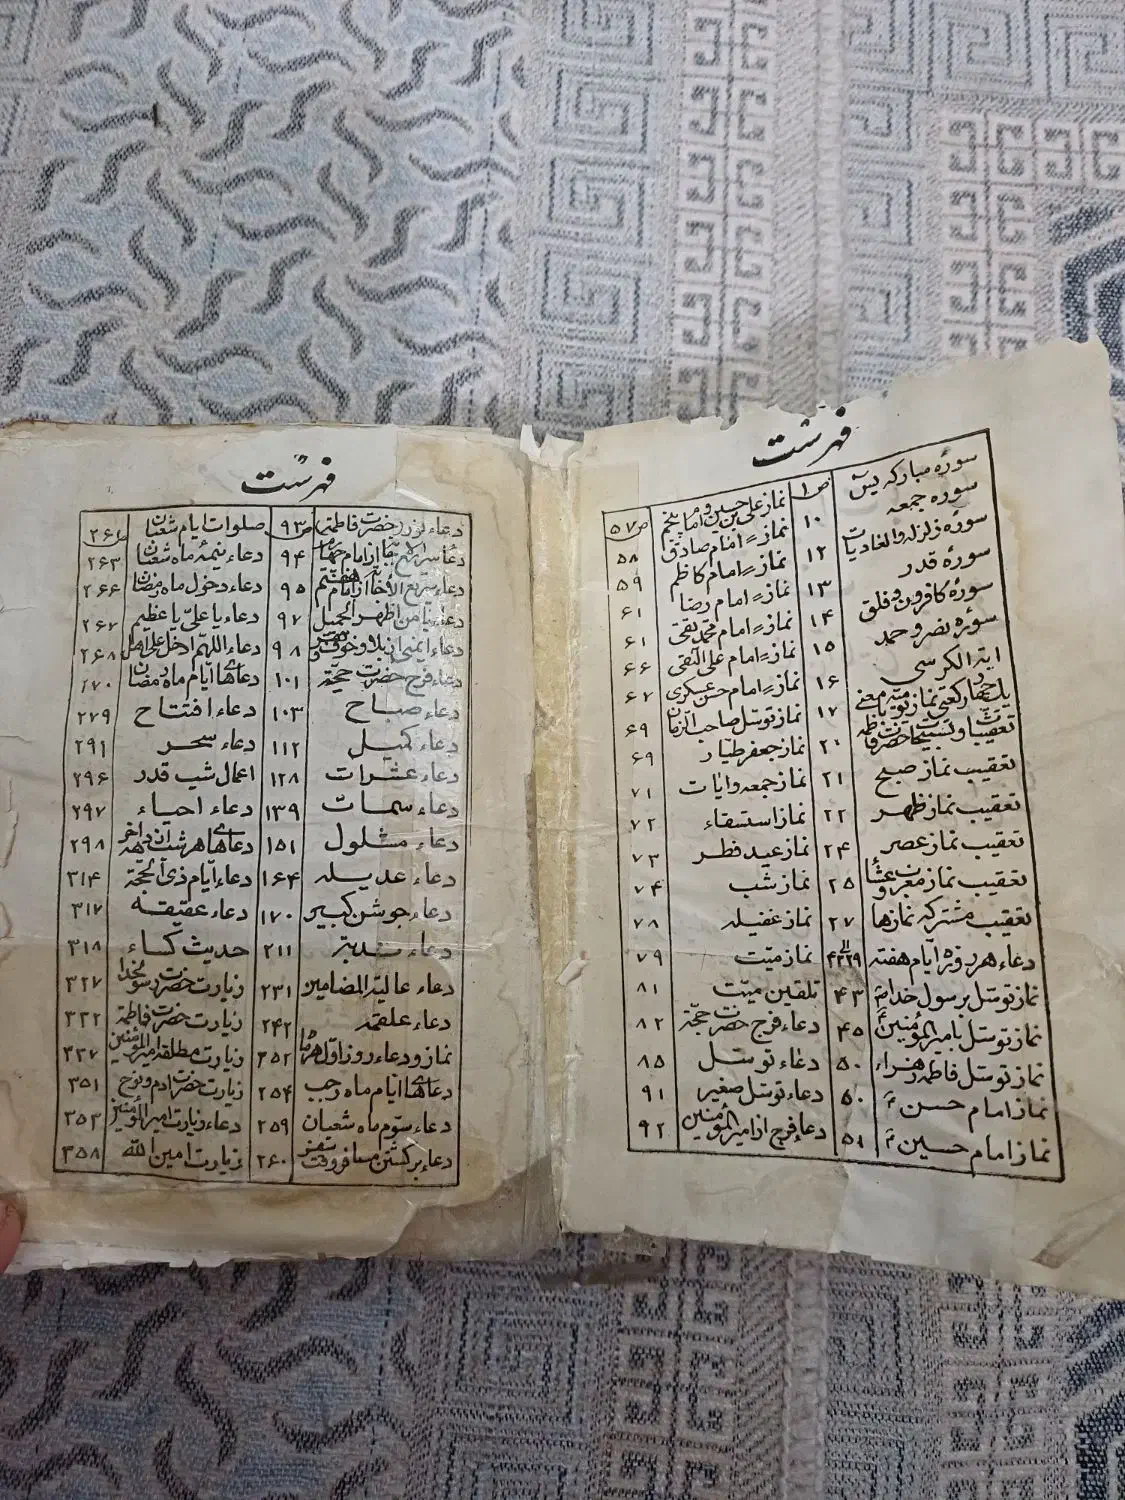 فهرست
سورهٔ مبارکه یس ص ۱
سوره جمعه ۱۰
سوره زلزله والعادیات ۱۲
سورهٔ قدر ۱۳
سورهٔ کافرون و فلق ۱۴
سوره نصر و حمد ۱۵
ایة الکرسی ۱۶
۱۷
تعقیبات و تسبیحات حضرت فاطمه ۲۰
تعقیب نماز صبح ۲۱
تعقیب نماز ظهر ۲۲
تعقیب نماز عصر ۲۴
تعقیب نماز مغرب و عشا ۲۵
تعقیب مشترکه نمازها ۲۷
دعاء هر روزه ایام هفته ۲۹ الی ۴۳
نماز توسل برسول خدا ۴۳
نماز توسل بامیرالمؤمنین ۴۵
نماز توسل فاطمه زهراء ۵۰
نماز امام حسن ۵۰
نماز امام حسین ۵۱
نماز علی بن حسین و امام پنجم ص ۵۷
نماز = امام صادق ۵۸
نماز = امام کاظم ۵۹
نماز = امام رضا ۶۱
نماز = امام محمد تقی ۶۱
نماز = امام علی النقی ۶۶
نماز = امام حسن عسکری ۶۷
نماز توسل صاحب الزمان ۶۹
نماز جعفر طیار ۶۹
نماز جمعه و ایات ۷۱
نماز استسقاء ۷۲
نماز عید فطر ۷۳
نماز شب ۷۴
نماز غفیله ۷۸
نماز میت ۷۹
تلقین میت ۸۱
دعاء فرج حضرت حجة ۸۲
دعاء توسل ۸۵
دعاء توسل صغیر ۹۱
دعاء فرج از امیرالمؤمنین ۹۲
فهرست
دعاء نور (حضرت فاطمه) ص ۹۳
۹۴
دعاء سریع الاجابة از امام هفتم ۹۵
دعاء یا من اظهر الجمیل ۹۷
دعاء ایمنی از بلا و خوف و ۹۸
دعاء فرج حضرت حجة ۱۰۱
دعاء صباح ۱۰۳
دعاء کمیل ۱۱۲
دعاء عشرات ۱۲۸
دعاء سمات ۱۳۹
دعاء مشلول ۱۵۱
دعاء عدیله ۱۶۴
دعاء جوشن کبیر ۱۷۰
دعاء ندبة ۲۱۱
دعاء عالیة المضامین ۲۳۱
دعاء علقمه ۲۴۲
نماز و دعاء روز اول هر ماه ۲۵۲
دعاهای ایام ماه رجب ۲۵۴
دعاء سوم ماه شعبان ۲۵۹
دعاء برگشتن مسافر وقت سفر ۲۶۰
صلوات ایام شعبان ص ۲۶۱
دعاء نیمهٔ ماه شعبان ۲۶۳
دعاء دخول ماه رمضان ۲۶۶
دعاء یا علی یا عظیم ۲۶۷
دعاء اللهم ادخل علی اهل ۲۶۸
دعاهای ایام ماه رمضان ۲۷۰
دعاء افتتاح ۲۷۹
دعاء سحر ۲۹۱
اعمال شب قدر ۲۹۶
دعاء احیاء ۲۹۷
دعاهای هر شب از دهه آخر ۲۹۸
دعاء ایام ذی الحجة ۳۱۴
دعاء عقیقه ۳۱۷
حدیث کساء ۳۱۸
زیارت حضرت رسول خدا ۳۲۷
زیارت حضرت فاطمة ۳۳۲
زیارت مطلقه امیرالمؤمنین ۳۳۷
زیارت حضرت ادم و نوح ۳۵۱
دعاء زیارت امیرالمؤمنین ۳۵۳
زیارت امین الله ۳۵۸